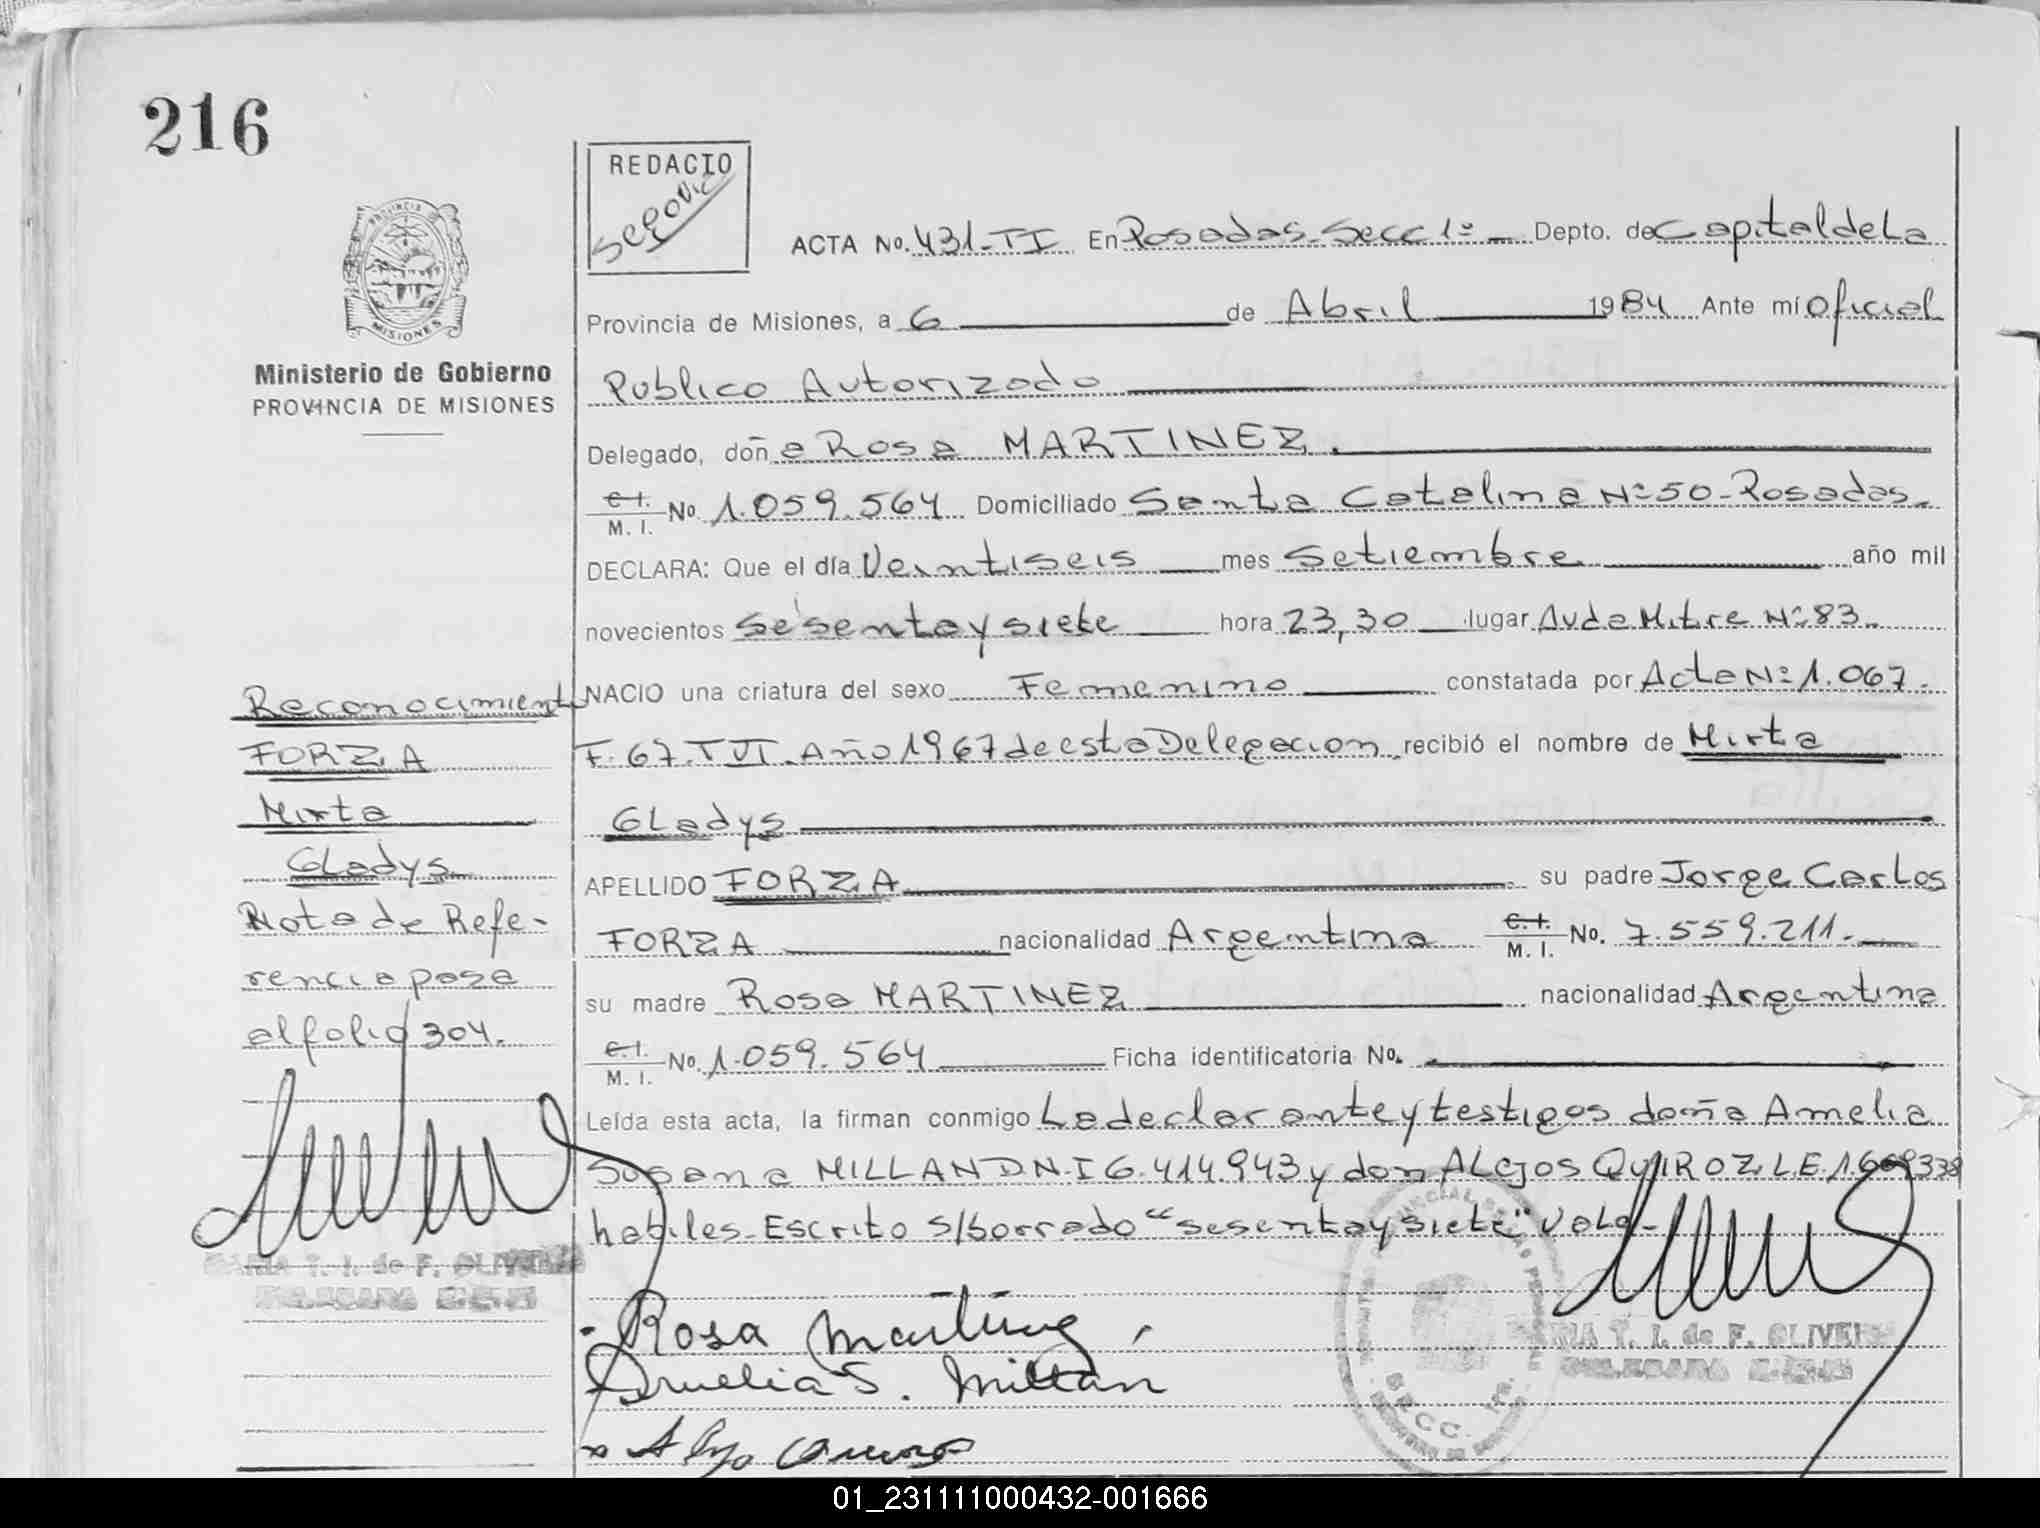 216
REDACIO
Segovia
PROVINCIA DE
MISIONES
Ministerio de Gobierno
PROVINCIA DE MISIONES
ACTA No. 431-TI En Posadas-Secc 1ª Depto. de Capital de La
Provincia de Misiones, a 6 de Abril 1984 Ante mí oficial
Publico Autorizado
Delegado, doña Rosa MARTINEZ.
C.I. M. I. No. 1.059.564 Domiciliado Santa Catalina Nº 50-Posadas.
DECLARA: Que el día Veintiseis mes Setiembre año mil
novecientos Sesenta y siete hora 23,30 lugar Avda Mitre Nº 83.
NACIO una criatura del sexo Femenino constatada por Acta Nº 1.067.
F. 67. T VI. Año 1967 de esta Delegacion recibió el nombre de Mirta
Gladys
APELLIDO FORZA su padre Jorge Carlos
FORZA nacionalidad Argentina C.I. M. I. No. 7.559.211.
su madre Rosa MARTINEZ nacionalidad Argentina
C.I. M. I. No. 1.059.564 Ficha identificatoria No.
Leída esta acta, la firman conmigo La declarante y testigos doña Amelia
Susana MILLAN D.N.I 6.414.943 y don ALejos QUIROZ L.E.
habiles. Escrito s/borrado "sesenta y siete" Vale-
Reconocimient
FORZA
Mirta
Gladys
Nota de Refe-
rencia pasa
al folio 304.
MARIA T. I. de F. OLIVEIRA
DELEGADA
Rosa Martinez
Amelia S. Millan
MARIA T. I. de F. OLIVEIRA
DELEGADA
SECC. 1ra.
01_231111000432-001666